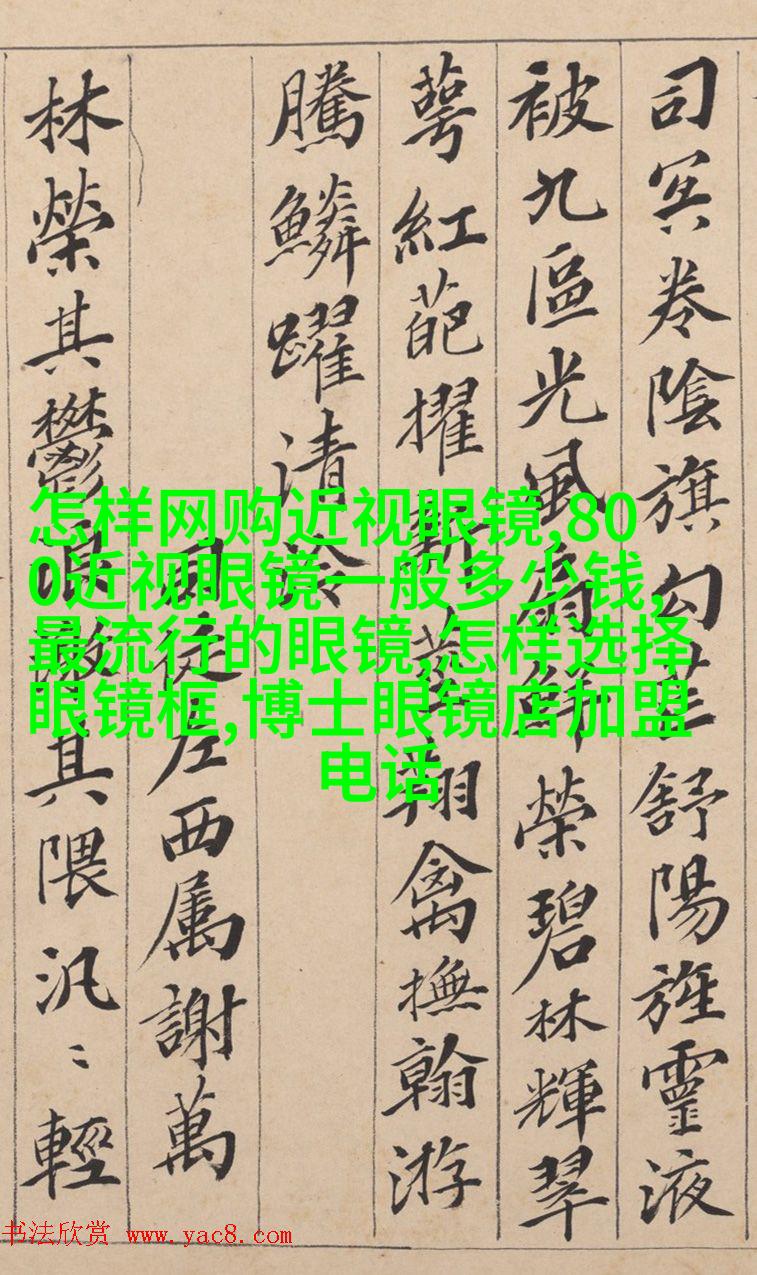 司冥卷陰旗勾芒舒陽旌靈液
被九區光風扇鮮榮碧林輝翠
萼紅葩擢新莖翔禽撫翰游
騰鱗躍清泠
司徒左西属謝萬
林榮其鬱浪激其隈汎〻輕
怎样网购近视眼镜,80
0近视眼镜一般多少钱,
最流行的眼镜,怎样选择
眼镜框,博士眼镜店加盟
电话
书法欣赏 www.yac8.com